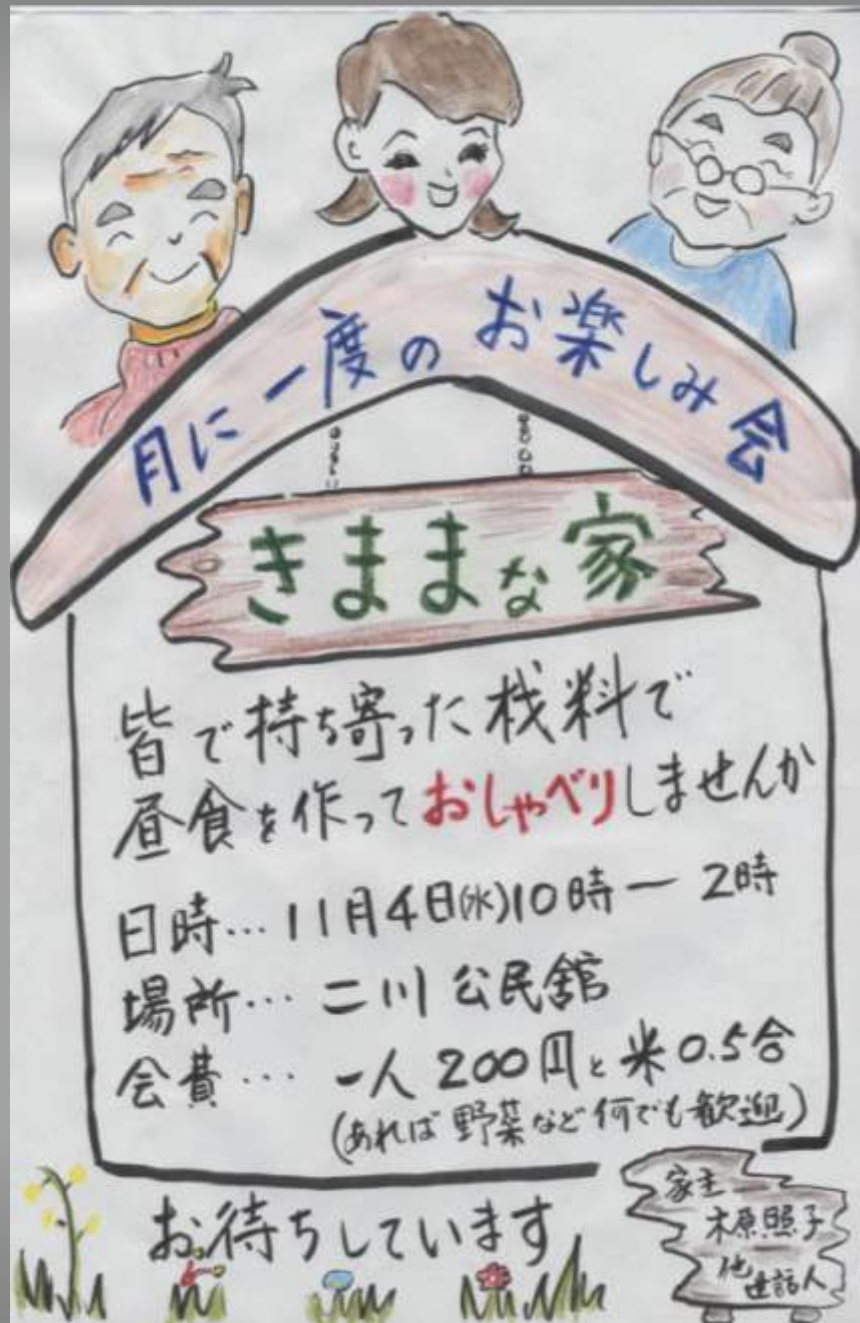 月に一度のお楽しみ会
きままな家
皆で持ち寄った材料で
昼食を作っておしゃべりしませんか
日時…11月4日(水)10時ー2時
場所…二川公民舘
会費…一人200円と米0.5合
(あれば野菜など何でも歓迎)
お待ちしています
家主
木原照子
他世話人